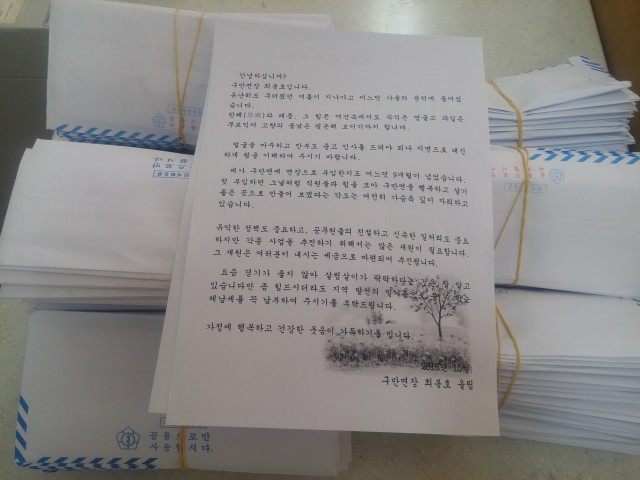 안녕하십니까?
구만면장 최봉호입니다.
유난히도 무더웠던 여름이 지나가고 어느덧 가을의 문턱에 들어섰
습니다.
한해(旱害)와 태풍, 그 힘든 여건속에서도 곡식은 영글고 과일은
무르익어 고향의 들녘은 평온해 보이기까지 합니다.
얼굴을 마주하고 안부도 묻고 인사를 드려야 되나 지면으로 대신
하게 됨을 이해하여 주시기 바랍니다.
제가 구만면에 면장으로 부임한지도 어느덧 9개월이 넘었습니다.
첫 부임하던 그날처럼 직원들과 힘을 모아 구만면을 행복하고 살기
좋은 곳으로 만들어 보겠다는 각오는 여전히 가슴속 깊이 자리하고
있습니다.
유익한 정책도 중요하고, 공무원들의 친절하고 신속한 일처리도 중요
하지만 각종 사업을 추진하기 위해서는 많은 재원이 필요합니다.
그 재원은 여러분이 내시는 세금으로 마련되어 추진됩니다.
요즘 경기가 좋지 않아 살림살이가 팍팍하다는 것은 잘 알고
있습니다만 좀 힘드시더라도 지역 발전의 밑거름
체납세를 꼭 납부하여 주시기를 부탁드립니다.
가정에 행복하고 건강한 웃음이 가득하기를 빕니다.
구만면장 최봉호 올림
공용으로만
사용합시다.